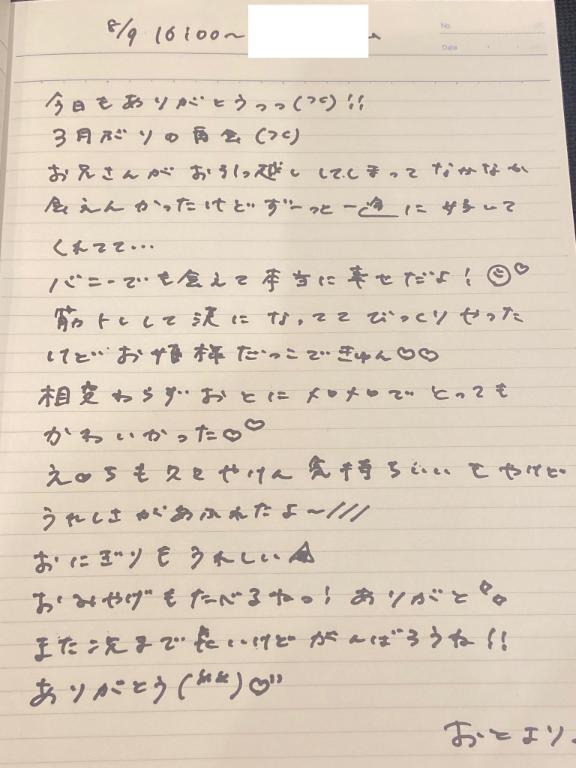 8/9 16:00~
No.
Date
今日もありがとうっっ(つc)!!
3月ぶりの再会(つc)
お兄さんがお引っ越ししてしまってなかなか
会えんかったけどずーっと一途に好きして
くれてて…
バニーでも会えて本当に幸せだよ!☺♡
筋トレして になっててびっくりやった
けどお姫様だっこできゅん♡♡
相変わらずおとにメロメロでとっても
かわいかった♡♡
え○ちも久々やけん気持ちいいもやけど
うれしさがあふれたよ〜///
おにぎりもうれしい🍙
おみやげもたべるねっ!ありがと
また次まで長いけどがんばろうね!!
ありがとう( )♡"
おとより。